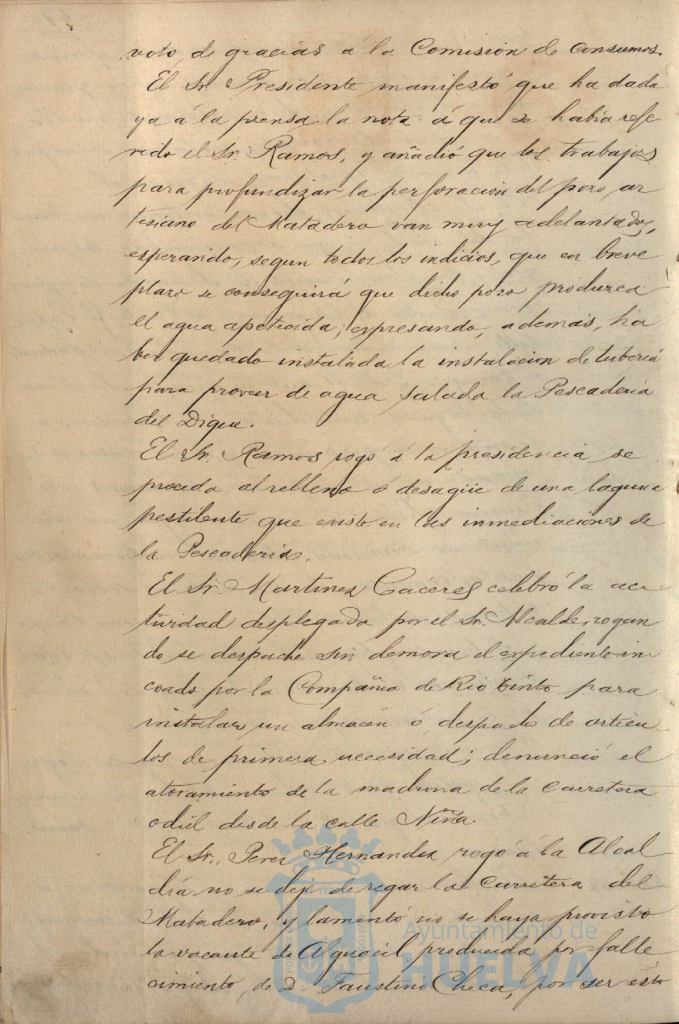 voto de gracias á la Comisión de Consumos.
El Sr. Presidente manifestó que ha dado
ya á la prensa la nota á que se había refe
rido el Sr. Ramos, y añadió que los trabajos
para profundizar la perforación del pozo ar
tesiano del Matadero van muy adelantados,
esperando, segun todos los indicios, que en breve
plazo se conseguirá que dicho pozo produzca
el agua apetecida; expresando, además, ha
ber quedado instalada la instalacion de tubería
para proveer de agua salada la Pescaderia
del Dique.
El Sr. Ramos rogó á la presidencia se
proceda al relleno ó desagüe de una laguna
pestilente que existe en las inmediaciones de
la Pescadería.
El Sr. Martinez Cáceres celebró la ac
tividad desplegada por el Sr. Alcalde, rogan
do se despache sin demora el expediente in
coado por la Compañia de Rio Tinto para
instalar un almacén ó despacho de articu
los de primera necesidad; denunció el
atoramiento de la madrona de la Carretera
Odiel desde la calle Niña.
El Sr. Perez Hernandez rogó á la Alcal
día no se deje de regar la Carretera del
Matadero, y lamentó no se haya provisto
la vacante de Alguacil producida por falle
cimiento de D. Faustino Checa, por ser esto
Ayuntamiento de
HUELVA